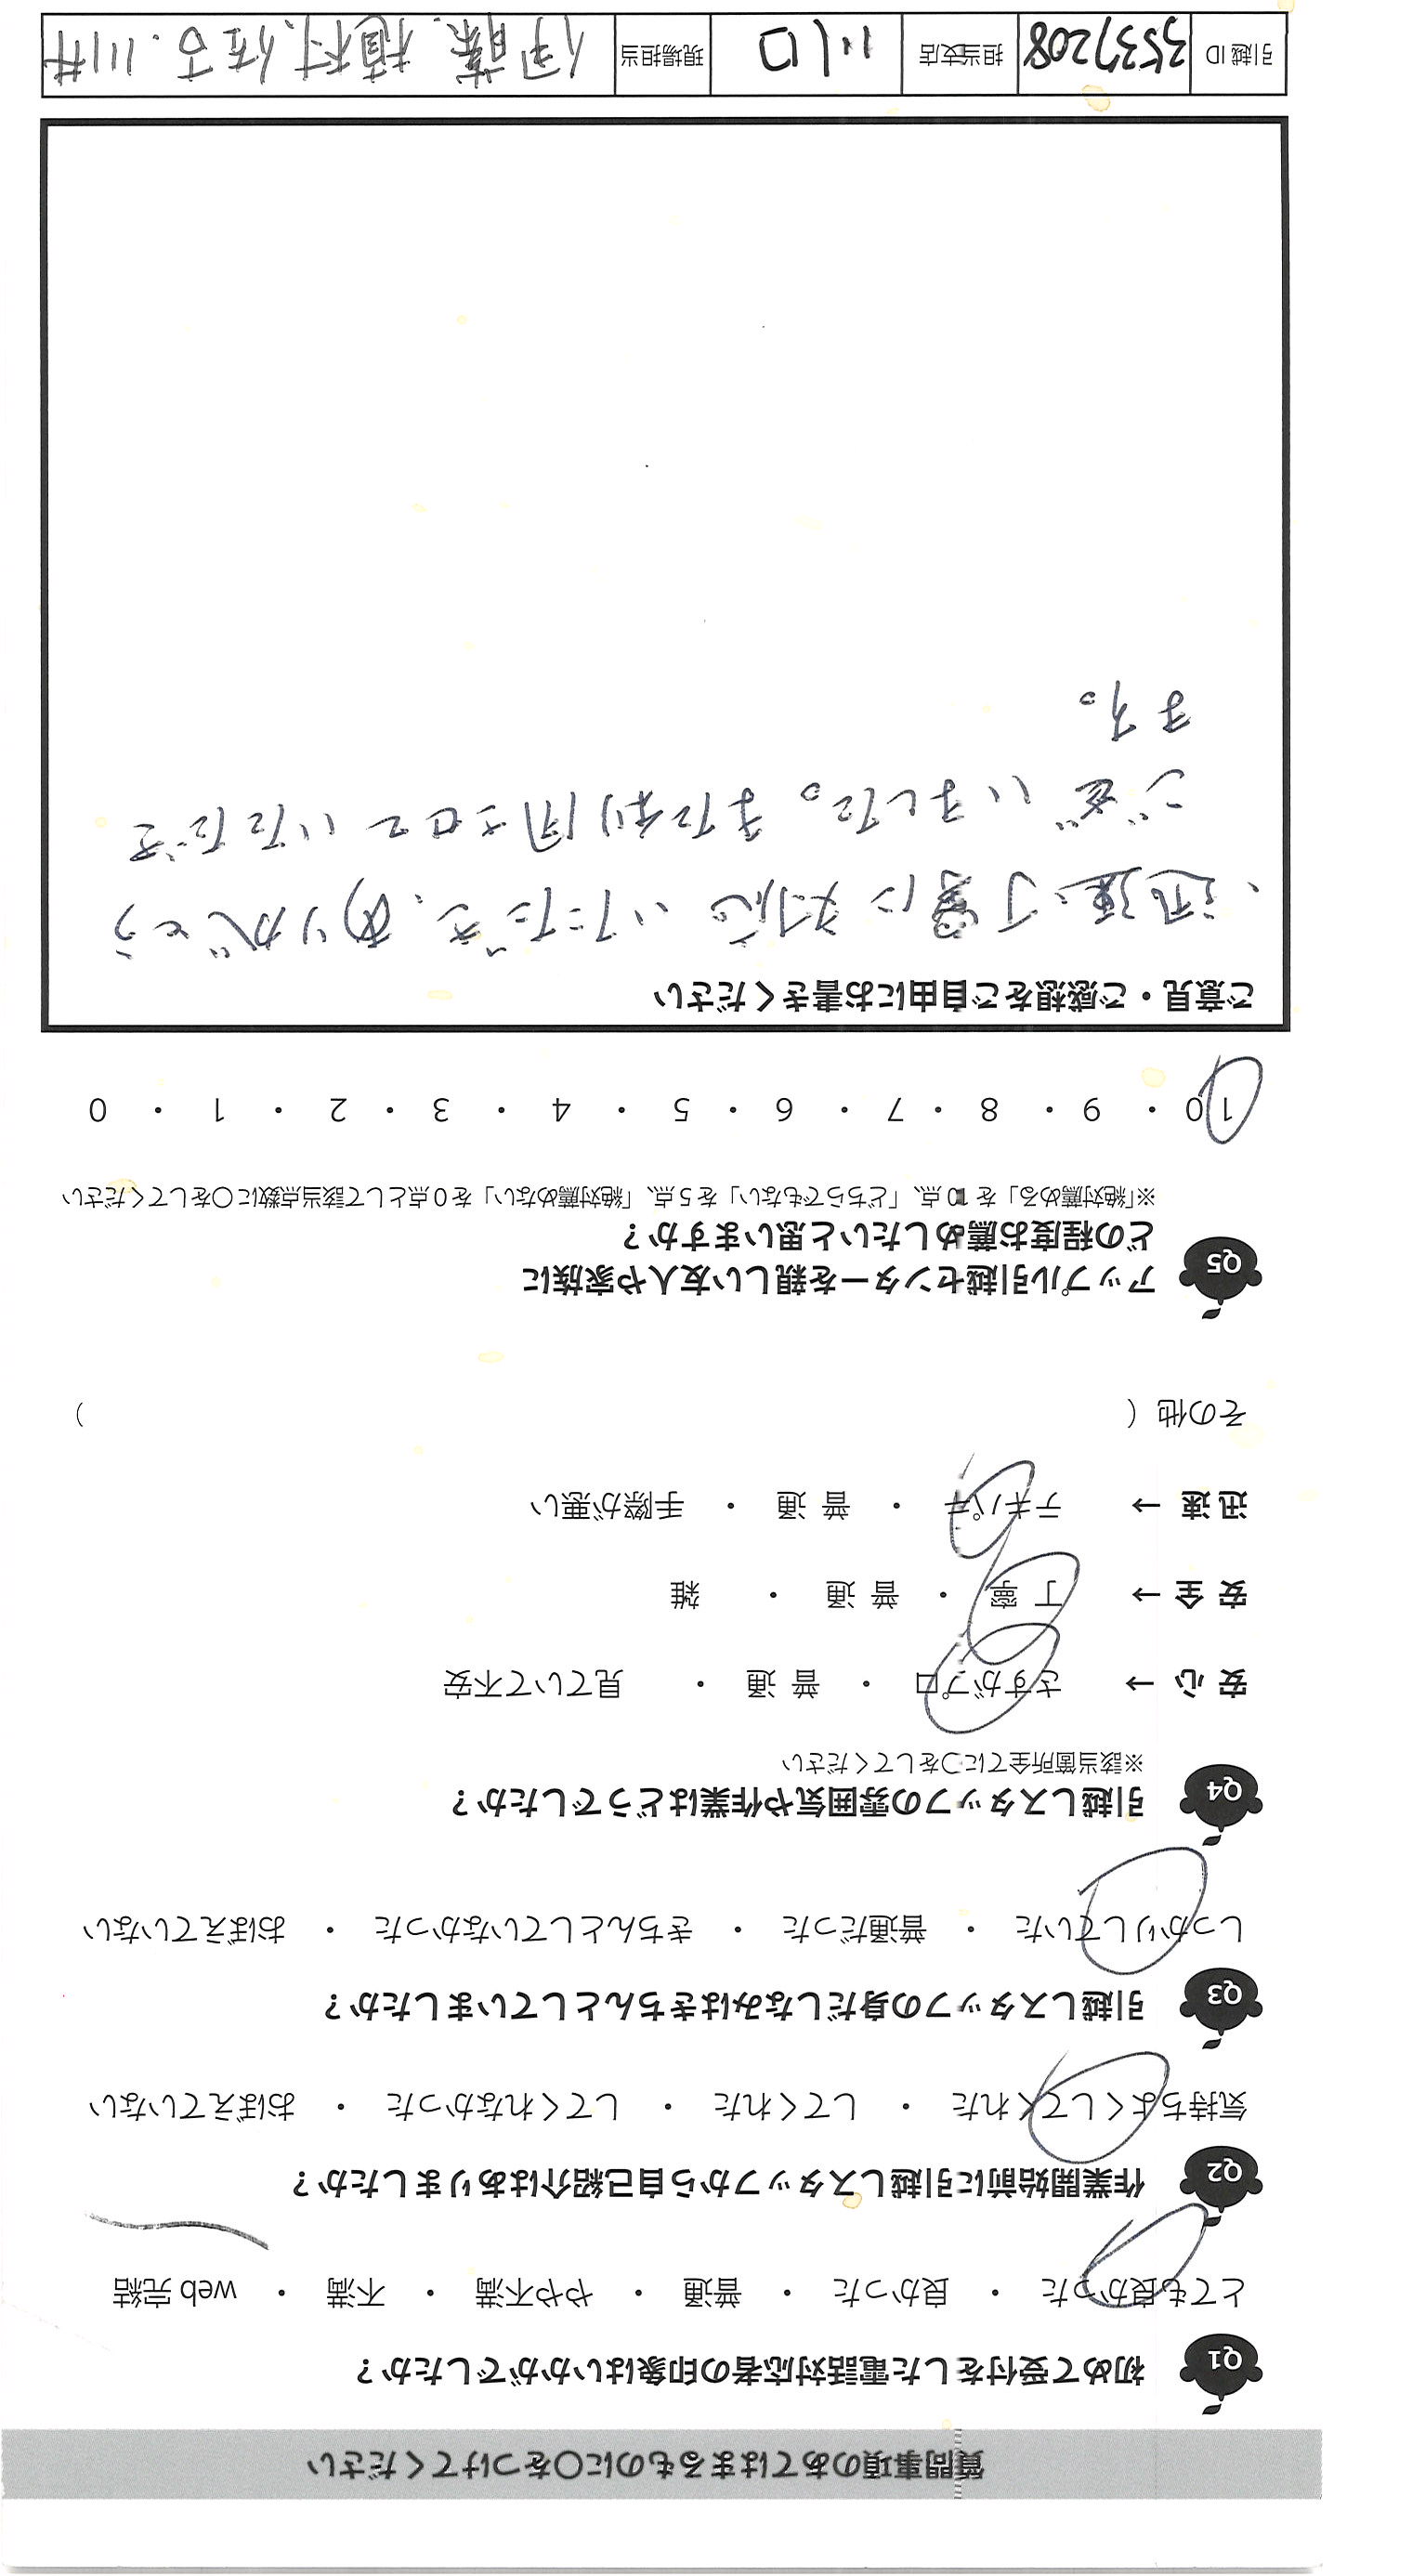 質問事項のあてはまるものに○をつけてください
Q1 初めて受付をした電話対応者の印象はいかがでしたか？
とても良かった ・ 良かった ・ 普通 ・ やや不満 ・ 不満 ・ web 完結
Q2 作業開始前に引越しスタッフから自己紹介はありましたか？
気持ちよくしてくれた ・ してくれた ・ してくれなかった ・ おぼえていない
Q3 引越しスタッフの身だしなみはきちんとしていましたか？
しっかりしていた ・ 普通だった ・ きちんとしていなかった ・ おぼえていない
Q4 引越しスタッフの雰囲気や作業はどうでしたか？
※該当箇所全てに○をしてください
安 心 → さすがプロ ・ 普 通 ・ 見ていて不安
安 全 → 丁 寧 ・ 普 通 ・ 雑
迅 速 → テキパキ ・ 普 通 ・ 手際が悪い
その他（ ）
Q5 アップル引越センターを親しい友人や家族に
どの程度お薦めしたいと思いますか？
※「絶対薦める」を 10 点、「どちらでもない」を５点、「絶対薦めない」を０点として該当点数に○をしてください
10 ・ 9 ・ 8 ・ 7 ・ 6 ・ 5 ・ 4 ・ 3 ・ 2 ・ 1 ・ 0
ご意見・ご感想をご自由にお書きください
・迅速、丁寧に対応いただき、ありがとう
ございました。また利用させていただき
ます。
引越 ID 3537208 担当支店 川口 現場担当 伊藤、植村、佐々、川井